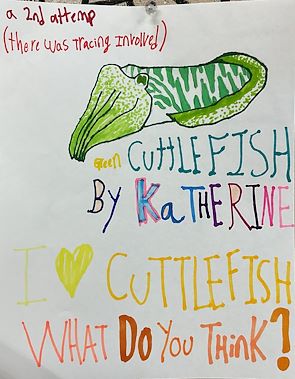 a 2nd attemp
(there was tracing involved)
Green CUTTLEFISH
BY KaTHERINE
I ♥ CUTTLEFISH
WHAT DO YOU THiNK?